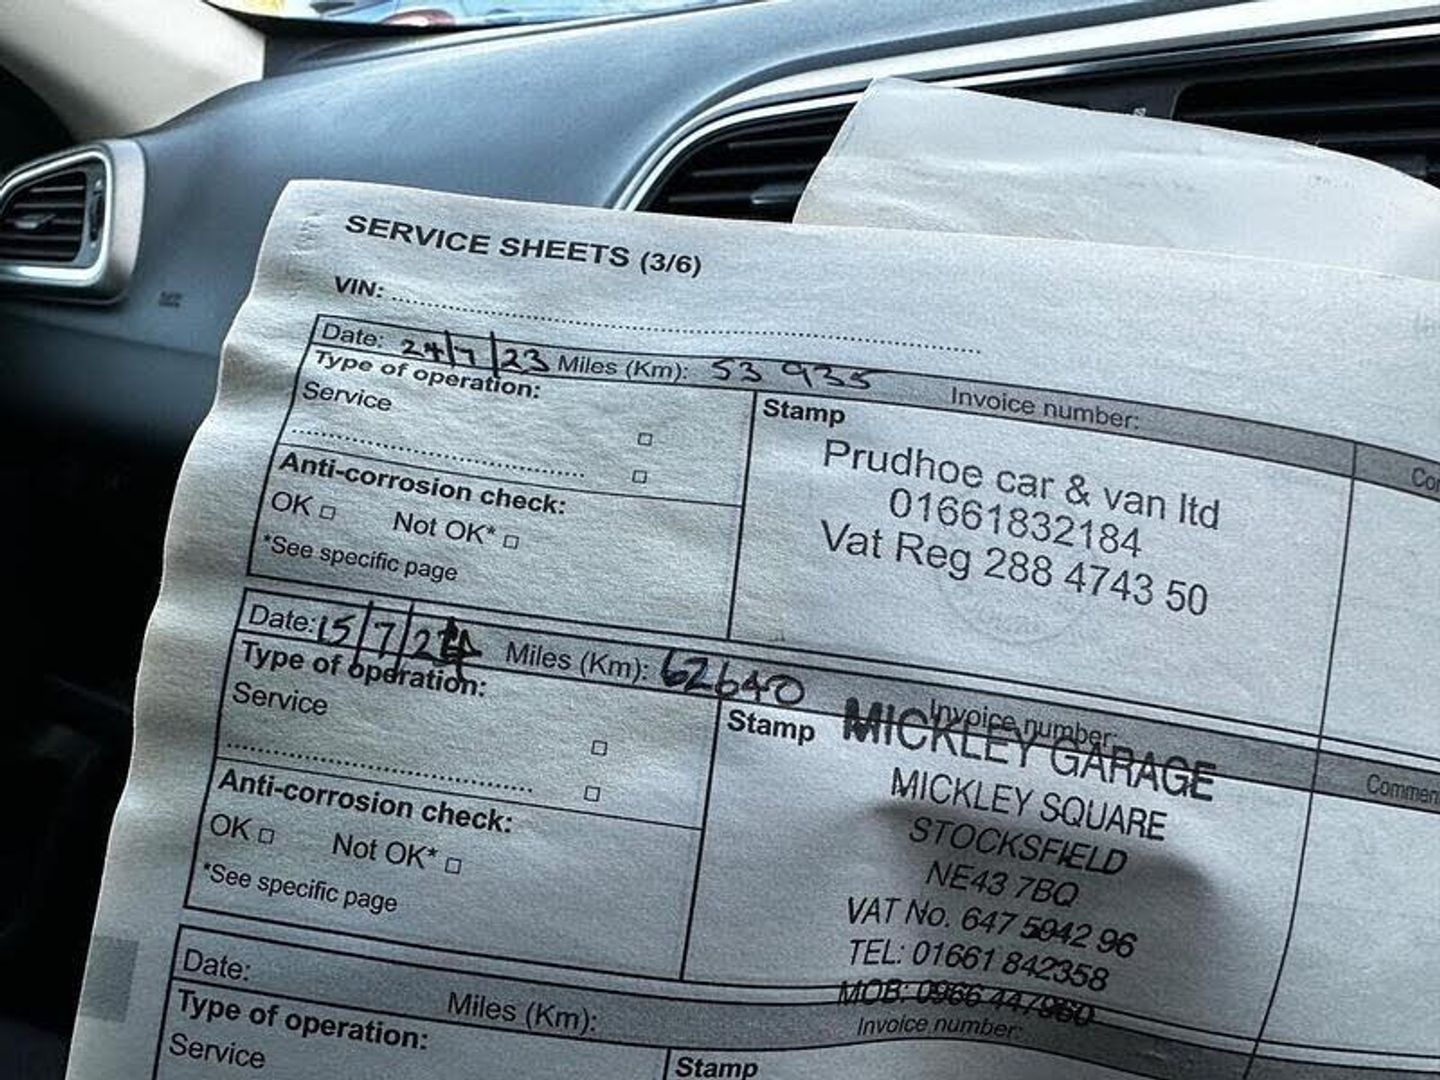 SERVICE SHEETS (3/6)
VIN:
Date: 24/7/23 Miles (Km): 53 935 Invoice number:
Type of operation:
Service
Stamp
Prudhoe car & van ltd
01661832184
Vat Reg 288 4743 50
Anti-corrosion check:
OK □ Not OK* □
*See specific page
Date: 15/7/24 Miles (Km): 62640 Invoice number:
Type of operation:
Service
Stamp
MICKLEY GARAGE
MICKLEY SQUARE
STOCKSFIELD
NE43 7BQ
VAT No. 647 5942 96
TEL: 01661 842358
MOB: 0966 447960
Anti-corrosion check:
OK □ Not OK* □
*See specific page
Date: Miles (Km): Invoice number:
Type of operation:
Service
Stamp